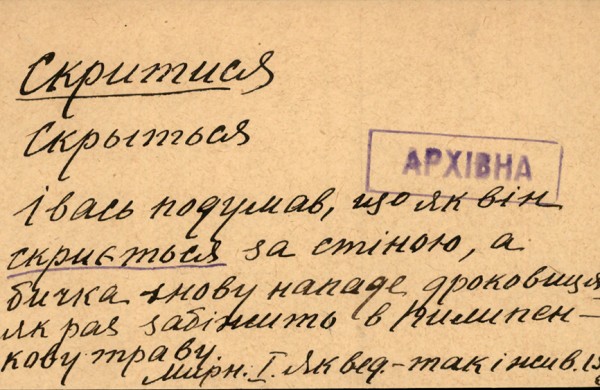 Скритися
Скрыться
АРХІВНА
Івась подумав, що як він
скриється за стіною, а
бичка знову нападе дроковиця
як раз забіжить в Пилипен-
кову траву.
Мирн. I. Як вед.-так і жив.